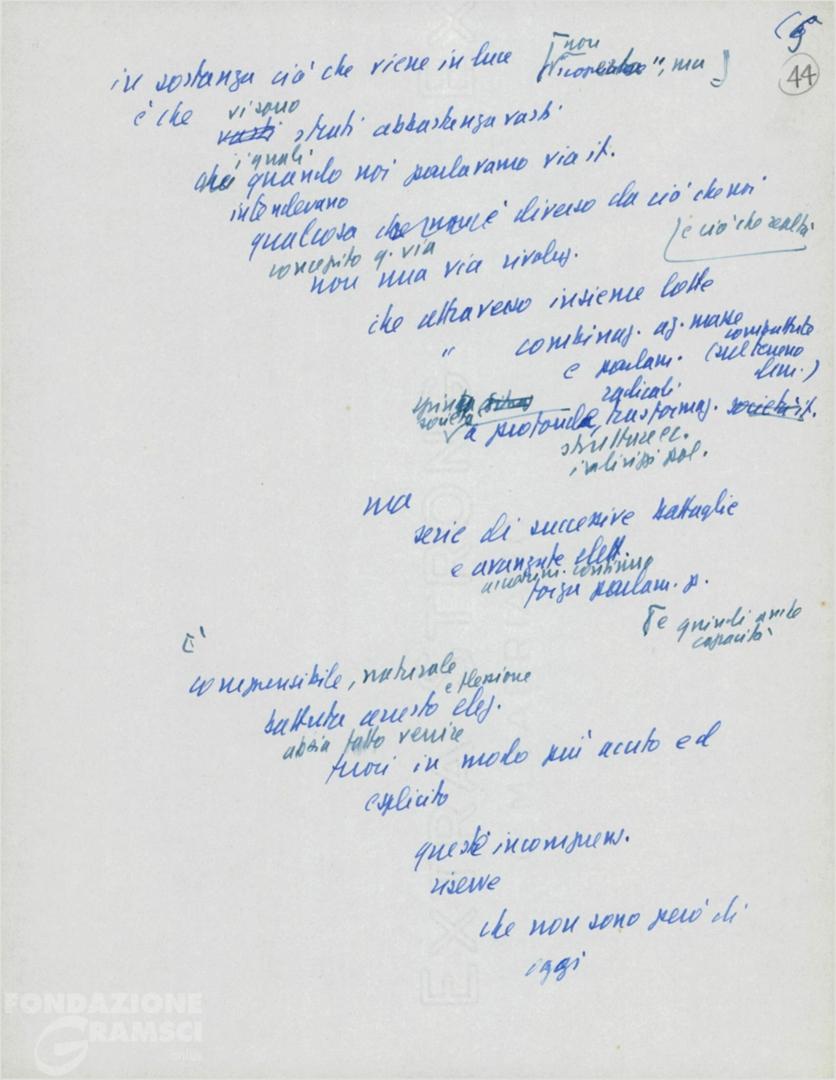 5
44
in sostanza ciò che viene in luce [non
", ma]
è che vi sono
vasti strati abbastanza vasti
che i quali quando noi parlavamo via it.
intendevano
qualcosa che è diverso da ciò che noi
concepito q. via [e ciò che realtà
non una via rivoluz.
che attraverso insieme lotte
" combinaz. az. masse
e parlam. (sul terreno
dem.)
radicali
società
a profonda, trasformaz. società it.
strutture ec.
indirizzi pol.
ma
serie di successive battaglie
e avanzate elett.
forza parlam. p.
[e quindi anche
capacità
È
comprensibile, naturale
e flessione
battuta arresto elez.
abbia fatto venire
fuori in modo più acuto ed
esplicito
queste incomprens.
riserve
che non sono però di
oggi
EXTRA STRONG
FONDAZIONE
GRAMSCI
onlus